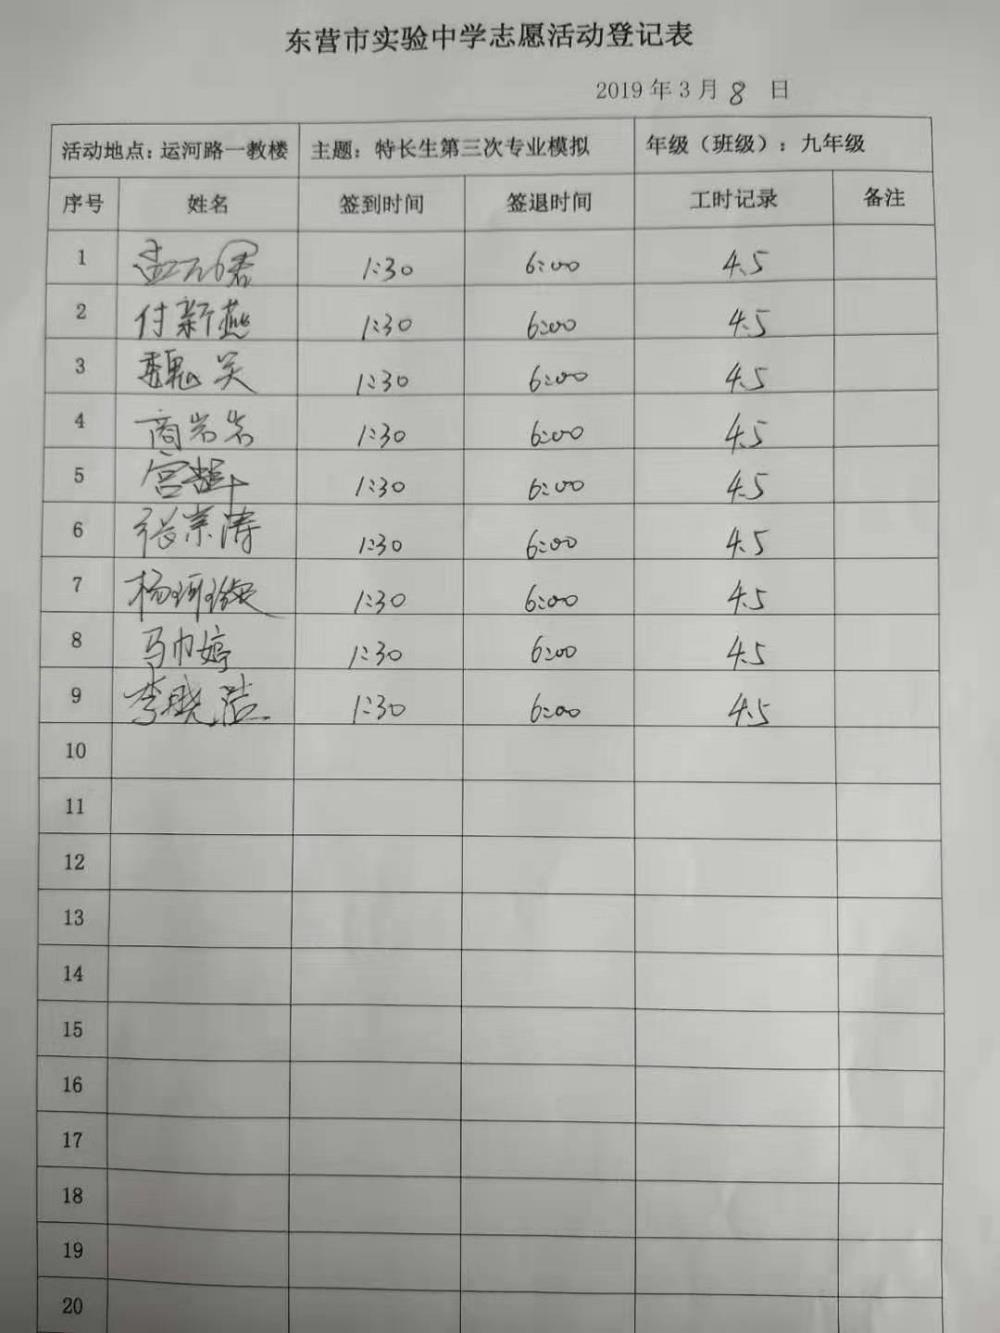 东营市实验中学志愿活动登记表
2019 年 3 月 8 日
活动地点：运河路一教楼 主题：特长生第三次专业模拟 年级（班级）：九年级
序号 姓名 签到时间 签退时间 工时记录 备注
1 1:30 6:00 4.5
2 付新燕 1:30 6:00 4.5
3 魏 1:30 6:00 4.5
4 商岩岩 1:30 6:00 4.5
5 宫 1:30 6:00 4.5
6 张宗涛 1:30 6:00 4.5
7 杨珂璇 1:30 6:00 4.5
8 马巾婷 1:30 6:00 4.5
9 李晓洁 1:30 6:00 4.5
10
11
12
13
14
15
16
17
18
19
20